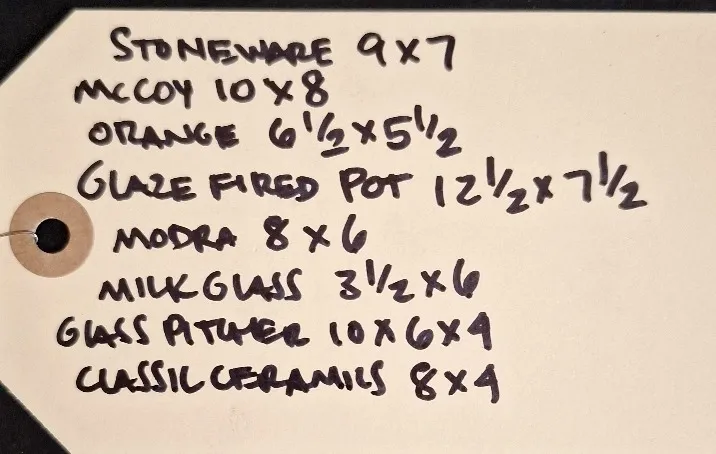 STONEWARE 9X7
McCOY 10X8
ORANGE 6 1/2 X 5 1/2
GLAZE FIRED POT 12 1/2 X 7 1/2
MODRA 8 X 6
MILK GLASS 3 1/2 X 6
GLASS PITCHER 10 X 6 X 4
CLASSIC CERAMICS 8 X 4